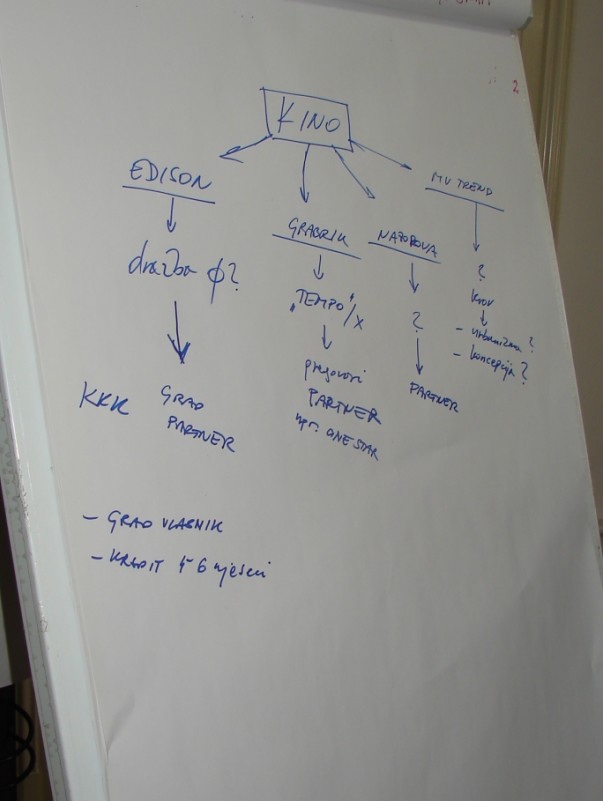 2
KINO
EDISON
dražba ϕ?
KKK
GRAD
PARTNER
GRABRIK
"TEMPO"/X
pregovori
PARTNER
npr. ONE STAR
NAZOROVA
?
PARTNER
MV TREND
?
Krov
- urbanizam ?
- koncepcija ?
- GRAD VLASNIK
- KREDIT 4-6 mjeseci